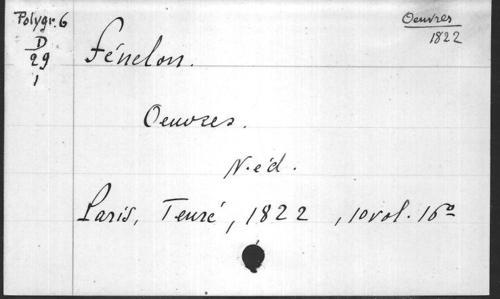 Polygr. 6
D
29
1
Oeuvres
1822
Fénelon.
Oeuvres.
N. éd.
Paris, Tenré, 1822, 10 vol. 16º